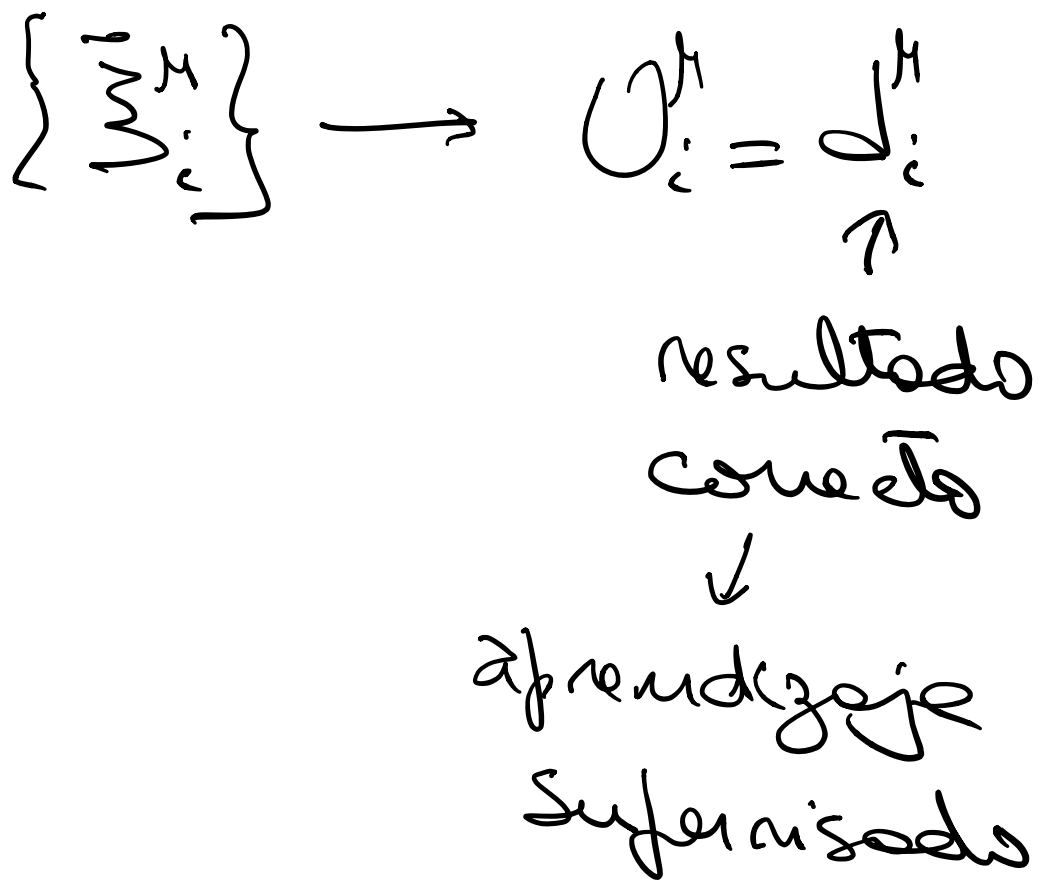 {ξ̄_i^μ} → O_i^μ = d_i^μ
↑
resultado
correcto
↓
aprendizaje
supervisado